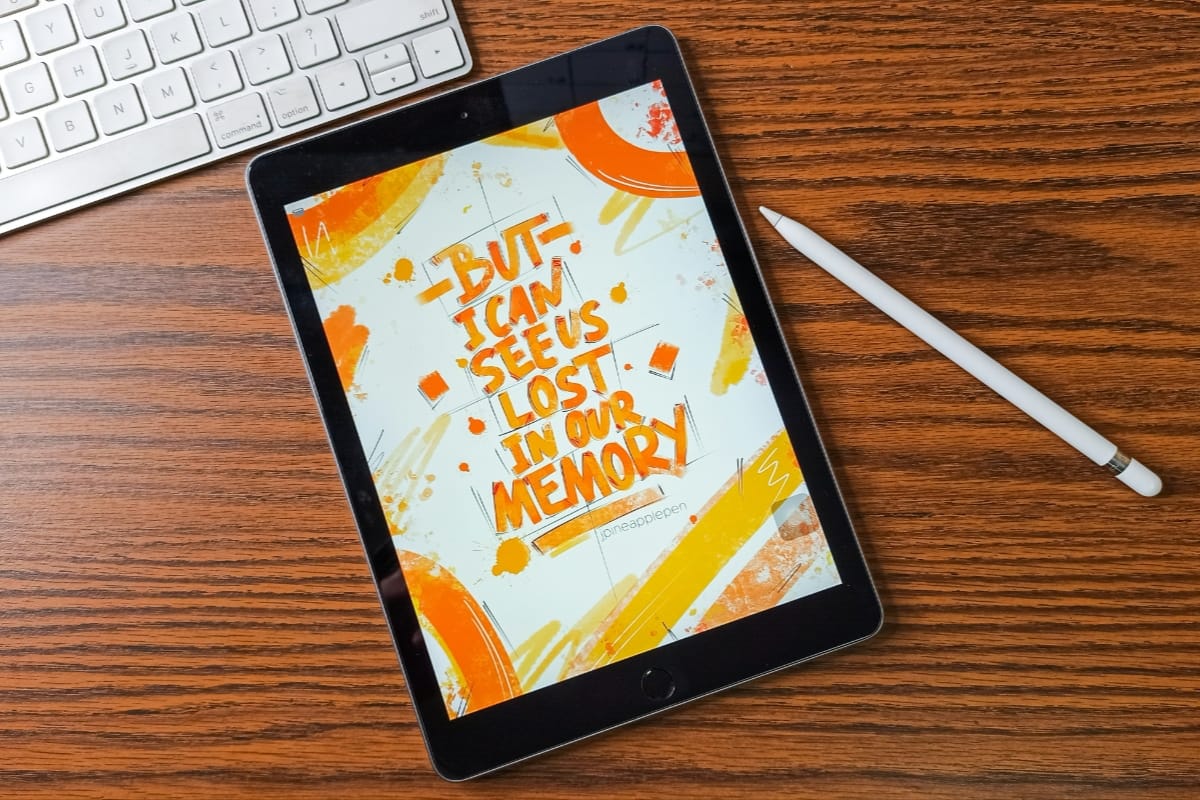 T Y U
shift
G H J K L ; ?
/
V B N M < , > .
command option
BUT
I CAN
SEE US
LOST
IN OUR
MEMORY
jpineapplepen